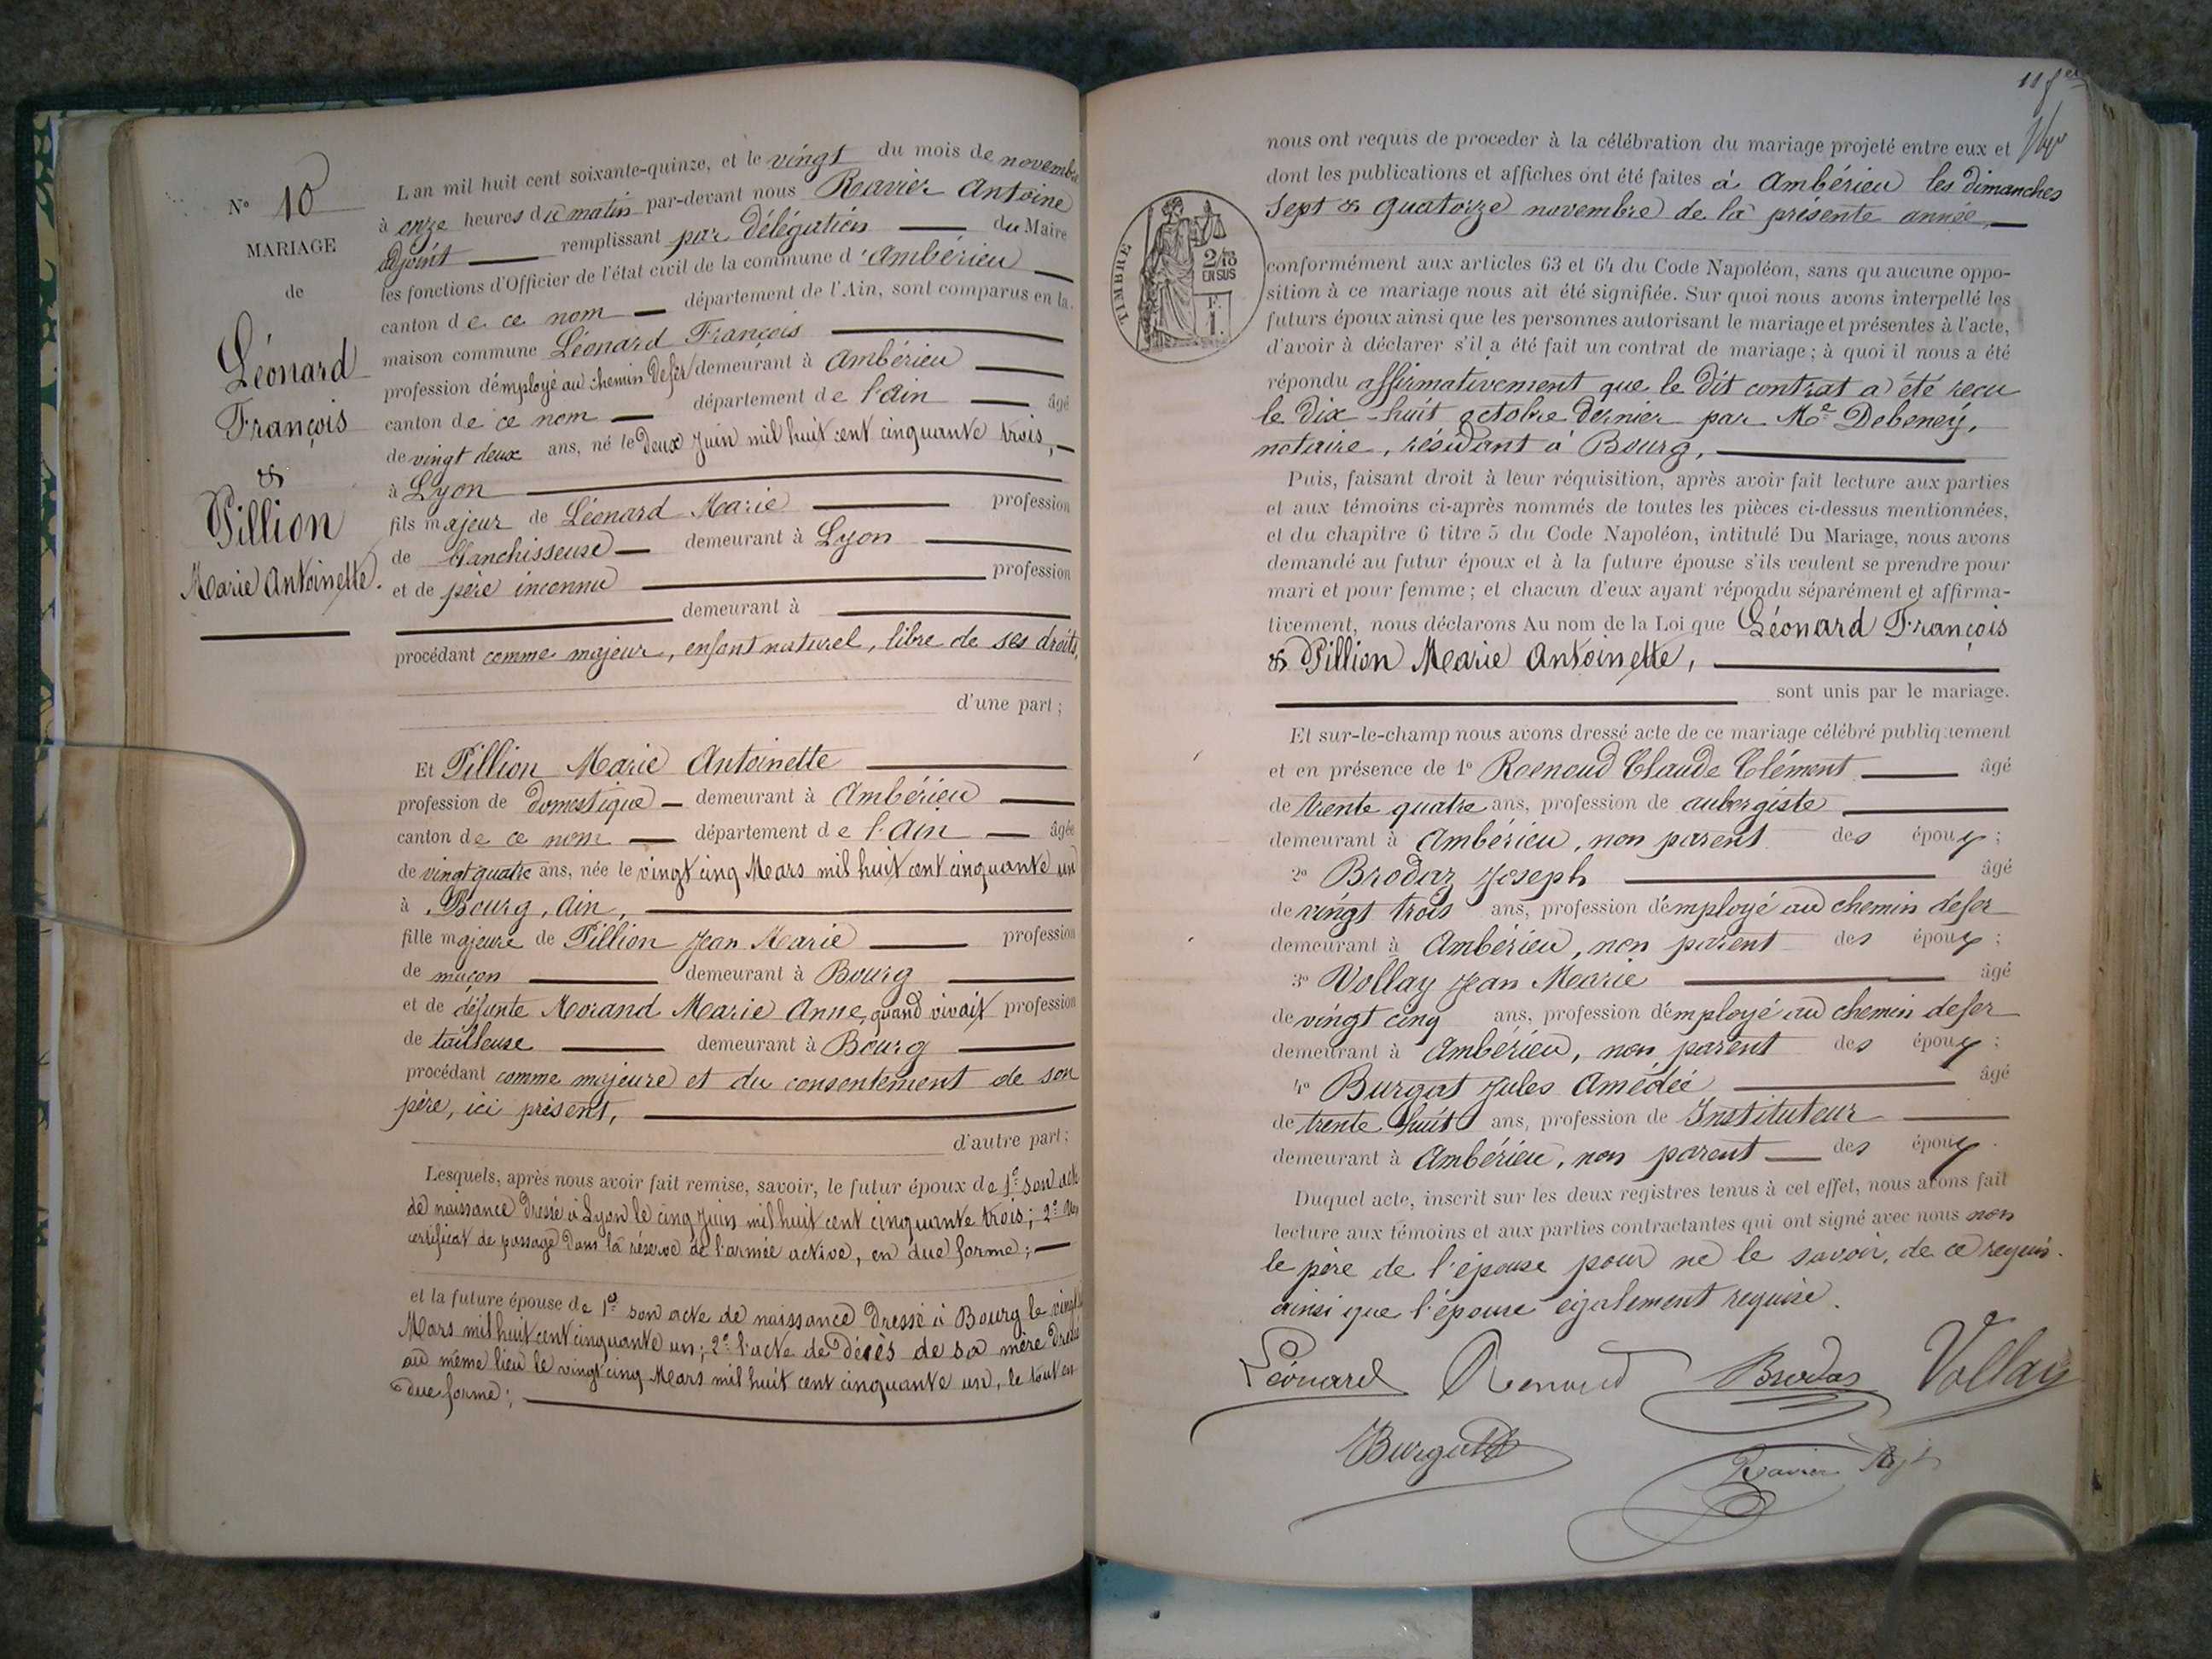 N° 10
MARIAGE
de
Léonard
François
&
Pillion
Marie Antoinette.
L'an mil huit cent soixante-quinze, et le vingt du mois de novembre
à onze heures du matin par-devant nous Ravier Antoine
adjoint remplissant par délégation du Maire
les fonctions d'Officier de l'état civil de la commune d'Ambérieu
canton de ce nom département de l'Ain, sont comparus en la
maison commune Léonard François
profession d'employé au chemin de fer demeurant à Ambérieu
canton de ce nom département de l'Ain âgé
de vingt deux ans, né le deux Juin mil huit cent cinquante trois,
à Lyon
fils majeur de Léonard Marie profession
de blanchisseuse demeurant à Lyon
et de père inconnu profession
demeurant à
procédant comme majeur, enfant naturel, libre de ses droits,
d'une part ;
Et Pillion Marie Antoinette
profession de domestique demeurant à Ambérieu
canton de ce nom département de l'Ain âgée
de vingt quatre ans, née le vingt cinq Mars mil huit cent cinquante un
à Bourg, Ain,
fille majeure de Pillion Jean Marie profession
de maçon demeurant à Bourg
et de défunte Morand Marie Anne, quand vivait profession
de tailleuse demeurant à Bourg
procédant comme majeure et du consentement de son
père, ici présent,
d'autre part ;
Lesquels, après nous avoir fait remise, savoir, le futur époux de 1° son acte
de naissance dressé à Lyon le cinq Juin mil huit cent cinquante trois ; 2° un
certificat de passage dans la réserve de l'armée active, en due forme ;
et la future épouse de 1° son acte de naissance dressé à Bourg le vingt
Mars mil huit cent cinquante un ; 2° l'acte de décès de sa mère dressé
au même lieu le vingt cinq Mars mil huit cent cinquante un, le tout en
due forme ;
nous ont requis de proceder à la célébration du mariage projeté entre eux et
dont les publications et affiches ont été faites à Ambérieu les dimanches
sept & quatorze novembre de la présente année,
TIMBRE
2/10
EN SUS
F.
1.
conformément aux articles 63 et 64 du Code Napoléon, sans qu'aucune oppo-
sition à ce mariage nous ait été signifiée. Sur quoi nous avons interpellé les
futurs époux ainsi que les personnes autorisant le mariage et présentes à l'acte,
d'avoir à déclarer s'il a été fait un contrat de mariage ; à quoi il nous a été
répondu affirmativement que le dit contrat a été reçu
le dix-huit octobre dernier par Me Debeney,
notaire, résidant à Bourg,
Puis, faisant droit à leur réquisition, après avoir fait lecture aux parties
et aux témoins ci-après nommés de toutes les pièces ci-dessus mentionnées,
et du chapitre 6 titre 5 du Code Napoléon, intitulé Du Mariage, nous avons
demandé au futur époux et à la future épouse s'ils veulent se prendre pour
mari et pour femme ; et chacun d'eux ayant répondu séparément et affirma-
tivement, nous déclarons Au nom de la Loi que Léonard François
& Pillion Marie Antoinette,
sont unis par le mariage.
Et sur-le-champ nous avons dressé acte de ce mariage célébré publiquement
et en présence de 1° Roenoud Claude Clément âgé
de trente quatre ans, profession de aubergiste
demeurant à Ambérieu, non parent des époux ;
2° Brodaz Joseph âgé
de vingt trois ans, profession d'employé au chemin de fer
demeurant à Ambérieu, non parent des époux ;
3° Vollay Jean Marie âgé
de vingt cinq ans, profession d'employé au chemin de fer
demeurant à Ambérieu, non parent des époux ;
4° Burgat Jules Amédée âgé
de trente huit ans, profession de Instituteur
demeurant à Ambérieu, non parent des époux.
Duquel acte, inscrit sur les deux registres tenus à cet effet, nous avons fait
lecture aux témoins et aux parties contractantes qui ont signé avec nous non
le père de l'épouse pour ne le savoir, de ce requis.
ainsi que l'épouse également requise.
Léonard Renoud Brodas Vollay
Burgat
Ravier Adj